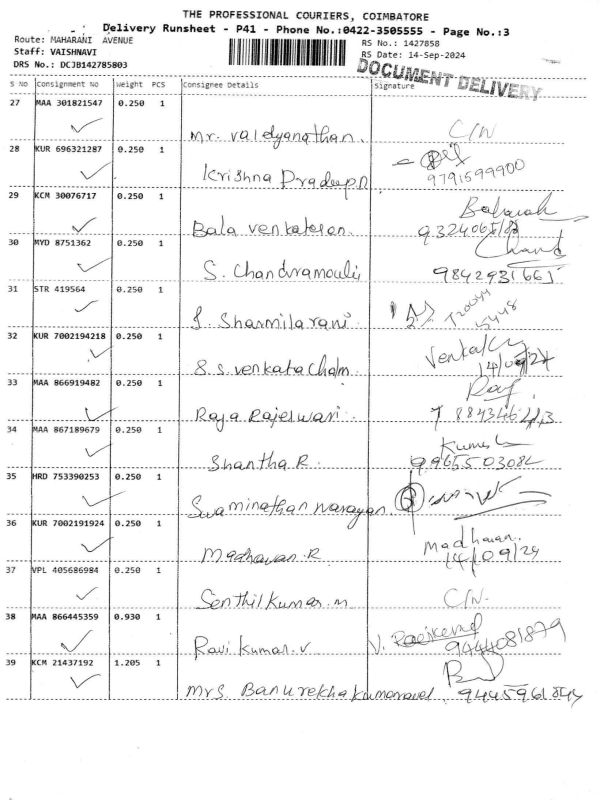 THE PROFESSIONAL COURIERS, COIMBATORE
Delivery Runsheet - P41 - Phone No.:0422-3505555 - Page No.:3
Route: MAHARANI AVENUE
RS No.: 1427858
Staff: VAISHNAVI
RS Date: 14-Sep-2024
DRS No.: DCJB142785803
DOCUMENT DELIVERY
S No Consignment No Weight PCS Consignee Details Signature
27 MAA 301821547 0.250 1
Mr. Vaidyanathan. C/N
28 KUR 696321287 0.250 1
Krishna Pradeep.n 9791599900
29 KCM 30076717 0.250 1
Bala Venkatesan.
30 MYD 8751362 0.250 1 Chand
S. Chandramouli 9842931661
31 STR 419564 0.250 1
Sharmilarani
32 KUR 7002194218 0.250 1
S.S. Venkatachalm. 14/09/24
33 MAA 866919482 0.250 1 Raj
Raja Rajeswari.
34 MAA 867189679 0.250 1
Shantha.R.
35 HRD 753390253 0.250 1
Swaminathan narayan
36 KUR 7002191924 0.250 1
Madhavan.R Madhavan.
14/09/24
37 VPL 405686984 0.250 1
Senthilkumar.m C/N.
38 MAA 866445359 0.930 1
Ravi kumar.v 9444081879
39 KCM 21437192 1.205 1
Mrs. Banurekha kumaravel